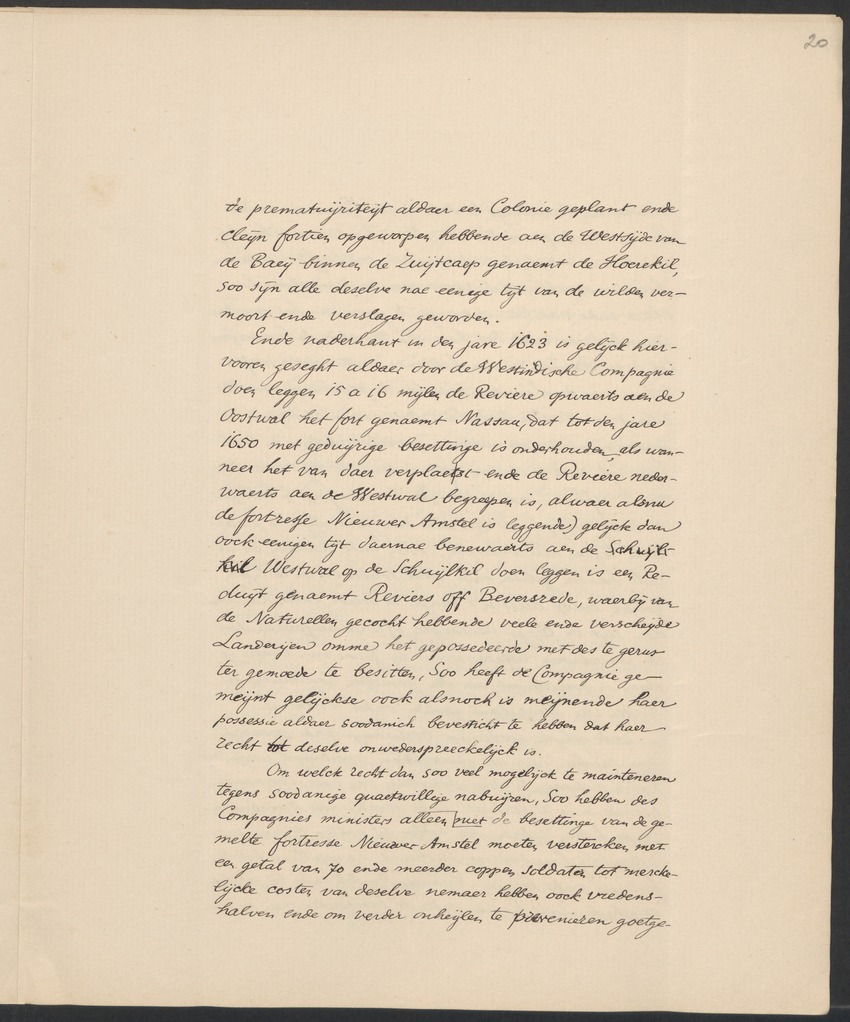 20
de prematuijriteijt aldaer een Colonie geplant ende
cleijn fortien opgeworpen hebbende aen de Westsijde van
de Baeij binnen de Zuijtcaep genaemt de Hoerekil,
soo sijn alle deselve nae eenige tijt van de wilden ver-
moort ende verslagen geworden.
Ende naderhant in den jare 1623 is gelijck hier-
vooren geseght aldaer door de Westindische Compagnie
doen leggen 15 a 16 mijlen de Reviere opwaerts aen de
Oostwal het fort genaemt Nassau, dat tot den jare
1650 met geduijrige besettinge is onderhouden, als wan-
neer het van daer verplaetst ende de Reviere neder-
waerts aen de Westwal begreepen is, alwaer alsnu
de fortresse Nieuwer Amstel is leggende) gelijck dan
oock eenigen tijt daernae benewaerts aen de Schuijl-
kil Westwal op de Schuijlkil doen leggen is een Re-
duijt genaemt Reviers off Beversrede, waerbij van
de Naturellen gecocht hebbende veele ende verscheijde
Landerijen omme het gepossedeerde met des te gerus-
ter gemoede te besitten, Soo heeft de Compagnie ge-
meijnt gelijckse oock alsnoch is meijnende haer
possessie aldaer soodanich bevesticht te hebben dat haer
recht tot deselve onwederspreeckelijck is.
Om welck recht dan soo veel mogelijck te mainteneren
tegens soodanige quaetwillige nabuijren, Soo hebben des
Compagnies ministers alleen niet de besettinge van de ge-
melte fortresse Nieuwer Amstel moeten verstercken met
een getal van 70 ende meerder coppen soldaten tot mercke-
lijcke costen van deselve nemaer hebben oock vredens-
halven ende om verder onheijlen te prevenieren goetge-